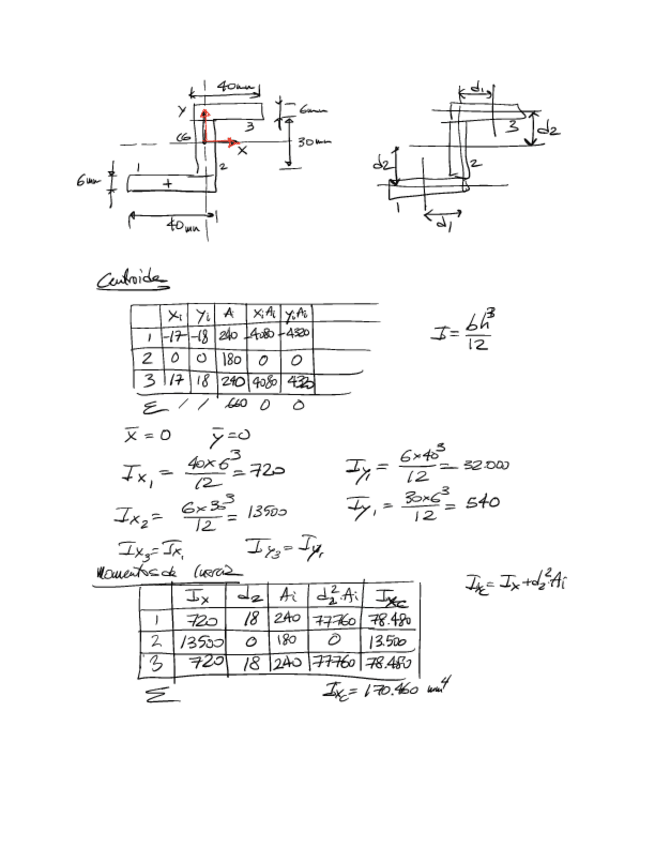 40mm
6mm
Y
3
CG
30mm
X
1
2
6mm
+
40mm
d1
3
d2
d2
2
1
d1
Centroides
Xi Yi A XiAi YiAi
1 -17 -18 240 -4080 -4320
2 0 0 180 0 0
3 17 18 240 4080 4320
Σ / / 660 0 0
I = bh³/12
X̄ = 0 Ȳ = 0
Ix₁ = 40x6³/12 = 720
Iy₁ = 6x40³/12 = 32.000
Ix₂ = 6x30³/12 = 13500
Iy₁ = 30x6³/12 = 540
Ix₃ = Ix₁ Iy₃ = Iy₁
Momentos de Inercia
Ix d2 Ai d₂²Ai Ixc
1 720 18 240 77760 78.480
2 13500 0 180 0 13.500
3 720 18 240 77760 78.480
Σ Ixc = 170.460 mm⁴
Ixc = Ix + d₂²Ai